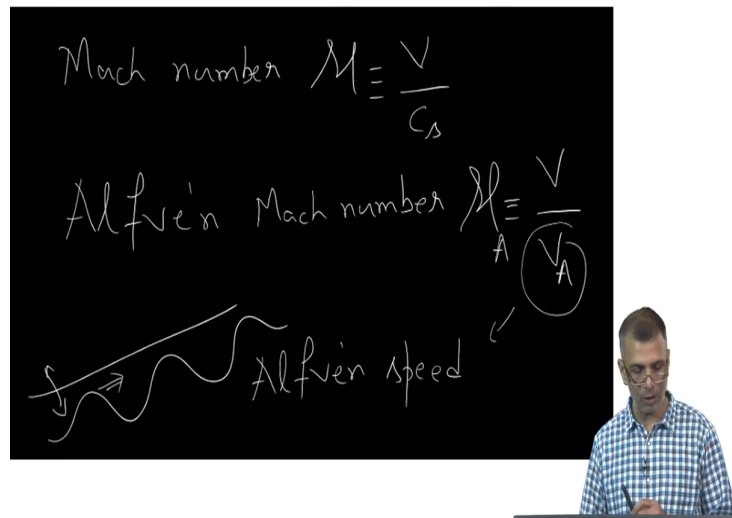 Mach number M ≡ V / Cs
Alfvén Mach number M_A ≡ V / V_A
Alfvén speed